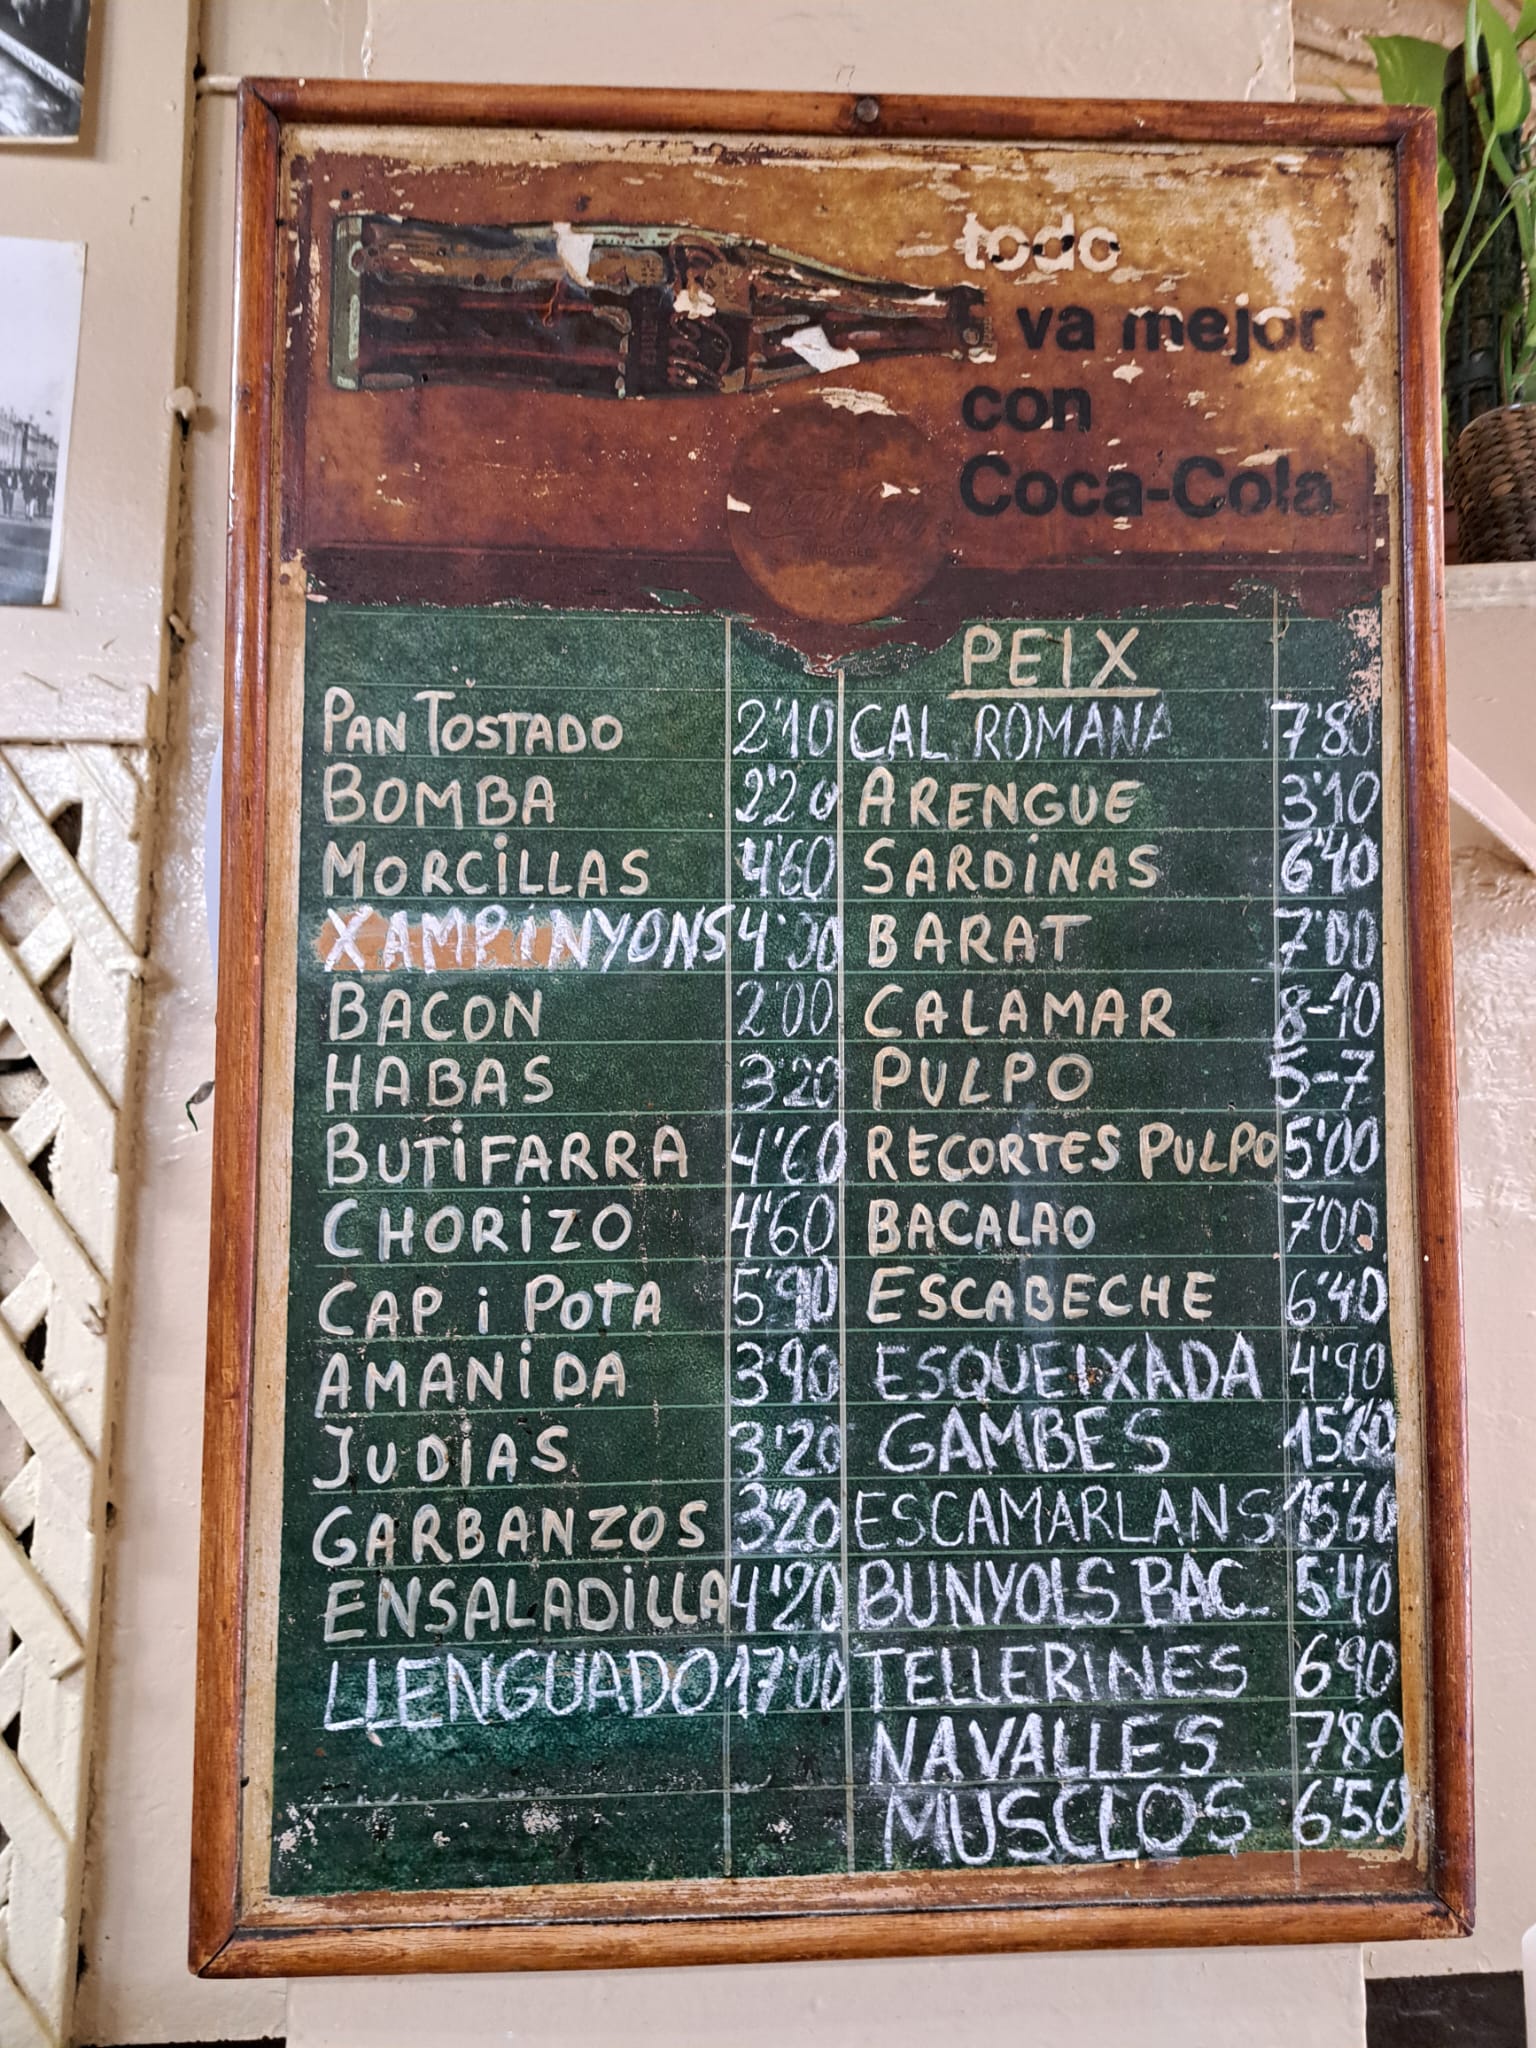 todo
va mejor
con
Coca-Cola
PEIX
PAN TOSTADO 2'10
BOMBA 2'20
MORCILLAS 4'60
XAMPINYONS
BACON 2'00
HABAS 3'20
BUTIFARRA 4'60
CHORIZO 4'60
CAP i POTA 5'90
AMANIDA 3'90
JUDIAS 3'20
GARBANZOS 3'20
ENSALADILLA 4'20
LLENGUADO 17'00
CAL. ROMANA 7'80
ARENGUE 3'10
SARDINAS 6'40
BARAT 7'00
CALAMAR 8-10
PULPO 5-7
RECORTES PULPO 5'00
BACALAO 7'00
ESCABECHE 6'40
ESQUEIXADA 4'90
GAMBES 15'60
ESCAMARLANS 15'60
BUNYOLS BAC. 5'40
TELLERINES 6'90
NAVALLES 7'80
MUSCLOS 6'50